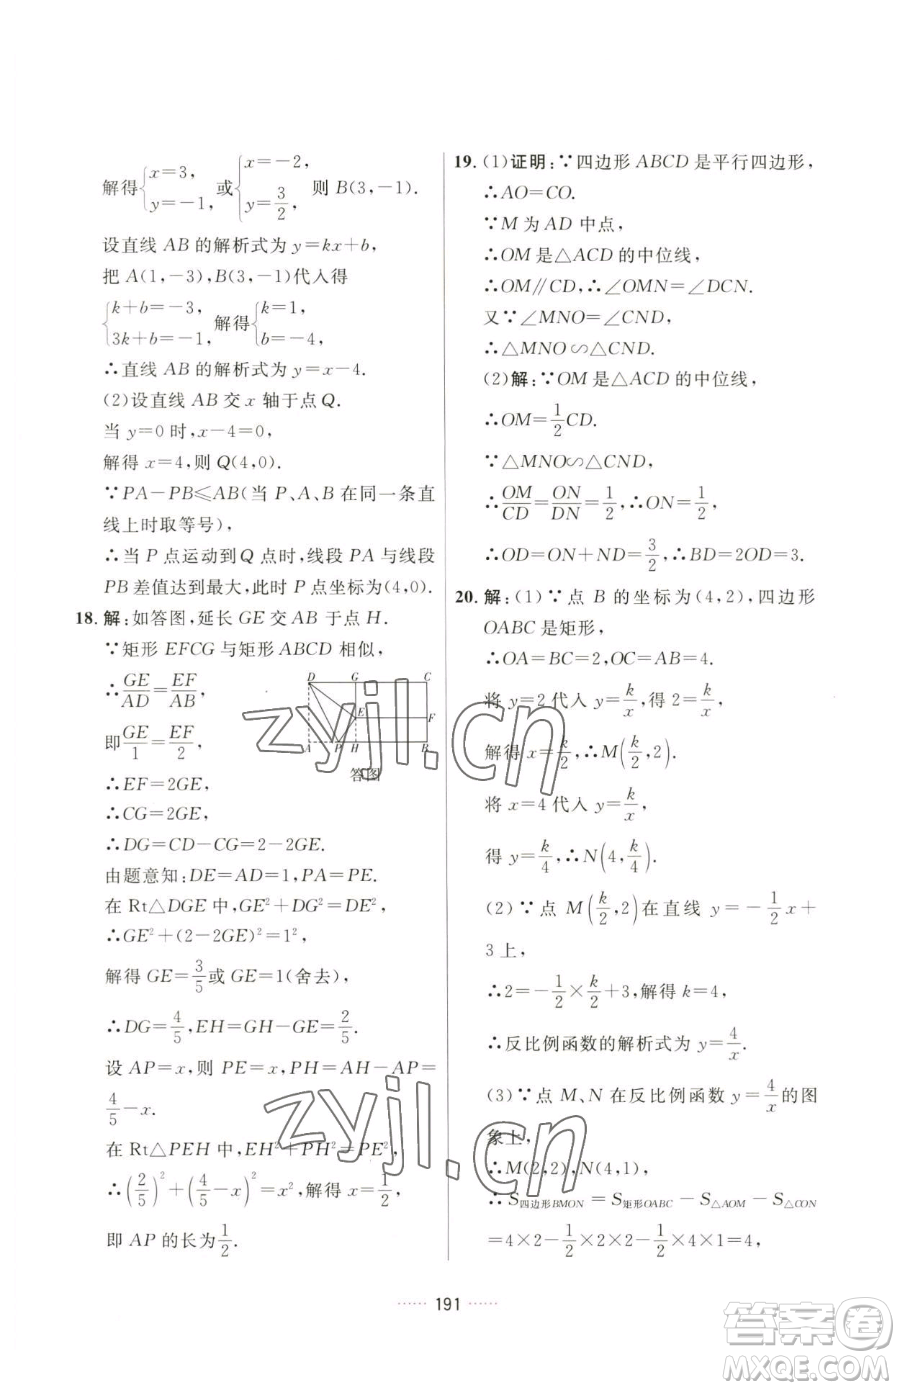 解得{x=3, y=-1, 或{x=-2, y=3/2, 则 B(3,-1).
设直线 AB 的解析式为 y=kx+b,
把 A(1,-3),B(3,-1)代入得
{k+b=-3, 3k+b=-1, 解得{k=1, b=-4,
∴直线 AB 的解析式为 y=x-4.
(2)设直线 AB 交 x 轴于点 Q.
当 y=0 时,x-4=0,
解得 x=4,则 Q(4,0).
∵PA-PB≤AB(当 P、A、B 在同一条直
线上时取等号),
∴当 P 点运动到 Q 点时,线段 PA 与线段
PB 差值达到最大,此时 P 点坐标为(4,0).
18. 解:如答图,延长 GE 交 AB 于点 H.
∵矩形 EFCG 与矩形 ABCD 相似,
∴GE/AD=EF/AB,
即GE/1=EF/2,
∴EF=2GE,
∴CG=2GE,
D G C
E F
A P H B
答图
∴DG=CD-CG=2-2GE.
由题意知:DE=AD=1,PA=PE.
在 Rt△DGE 中,GE²+DG²=DE²,
∴GE²+(2-2GE)²=1²,
解得 GE=3/5或 GE=1(舍去),
∴DG=4/5,EH=GH-GE=2/5.
设 AP=x,则 PE=x,PH=AH-AP=
4/5-x.
在 Rt△PEH 中,EH²+PH²=PE²,
∴(2/5)²+(4/5-x)²=x²,解得 x=1/2,
即 AP 的长为1/2.
19. (1)证明:∵四边形 ABCD 是平行四边形,
∴AO=CO.
∵M 为 AD 中点,
∴OM 是△ACD 的中位线,
∴OM∥CD,∴∠OMN=∠DCN.
又∵∠MNO=∠CND,
∴△MNO∽△CND.
(2)解:∵OM 是△ACD 的中位线,
∴OM=1/2CD.
∵△MNO∽△CND,
∴OM/CD=ON/DN=1/2,∴ON=1/2,
∴OD=ON+ND=3/2,∴BD=2OD=3.
20. 解:(1)∵点 B 的坐标为(4,2),四边形
OABC 是矩形,
∴OA=BC=2,OC=AB=4.
将 y=2 代入 y=k/x,得 2=k/x,
解得 x=k/2,∴M(k/2,2).
将 x=4 代入 y=k/x,
得 y=k/4,∴N(4,k/4).
(2)∵点 M(k/2,2)在直线 y=-1/2x+
3 上,
∴2=-1/2×k/2+3,解得 k=4,
∴反比例函数的解析式为 y=4/x.
(3)∵点 M、N 在反比例函数 y=4/x的图
象上,
∴M(2,2),N(4,1),
∴S四边形BMON=S矩形OABC-S△AOM-S△CON
=4×2-1/2×2×2-1/2×4×1=4,
······ 191 ······
zyjl.cn
zyjl.cn
答案卷
MXQE.COM